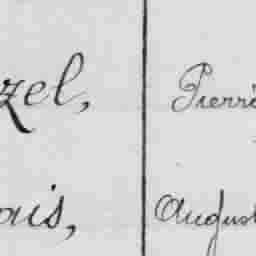 zel, Pierre
ais, August